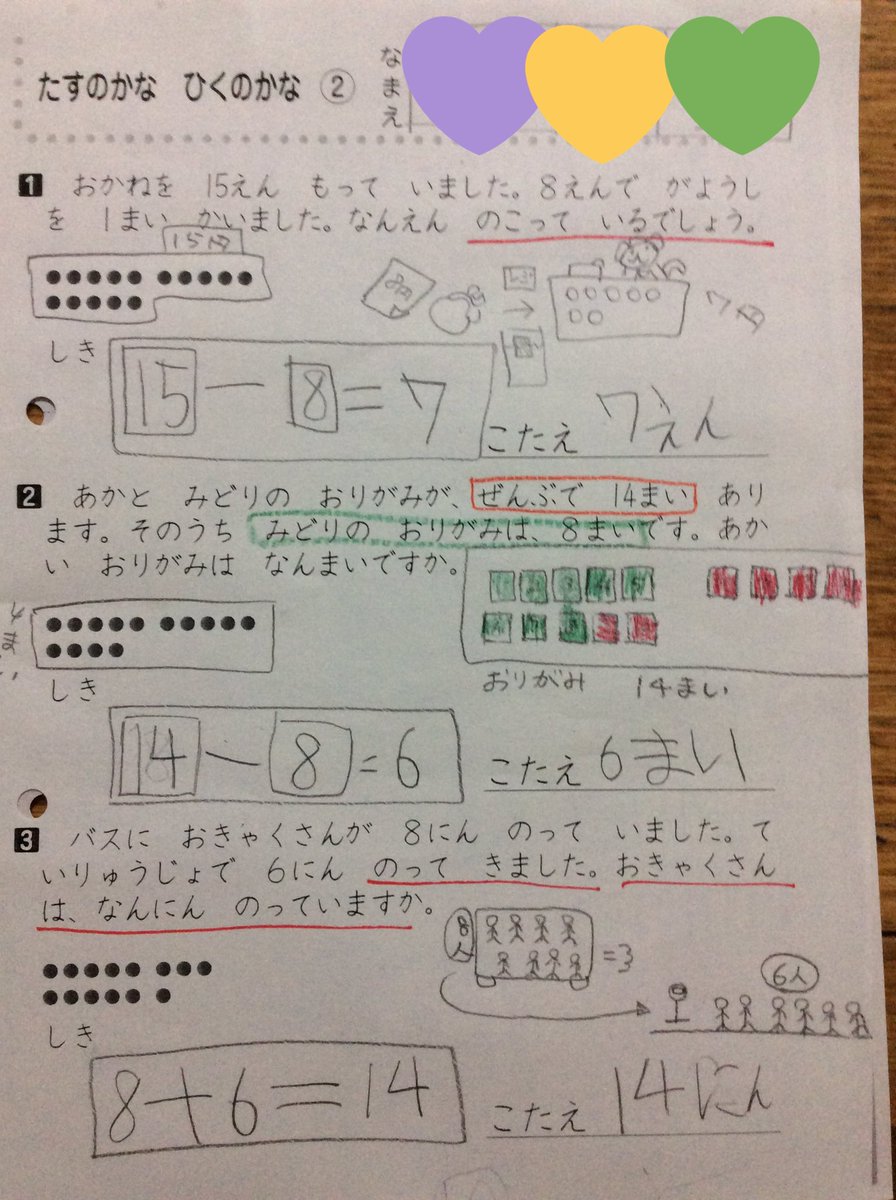 たすのかな ひくのかな ②
なまえ
1 おかねを 15えん もって いました。8えんで がようし
を 1まい かいました。なんえん のこって いるでしょう。
15円
8円
7円
しき
15－8＝7
こたえ 7えん
2 あかと みどりの おりがみが、ぜんぶで 14まい あり
ます。そのうち みどりの おりがみは、8まいです。あか
い おりがみは なんまいですか。
おりがみ 14まい
しき
14－8＝6
こたえ 6まい
3 バスに おきゃくさんが 8にん のって いました。て
いりゅうじょで 6にん のって きました。おきゃくさん
は、なんにん のっていますか。
8人
=3
6人
しき
8＋6＝14
こたえ 14にん